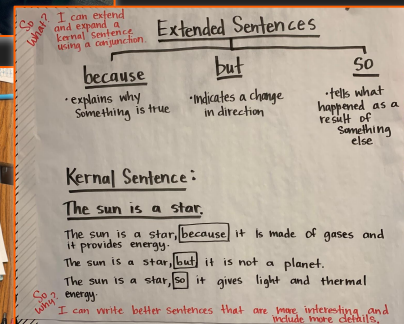 So What?
I can extend
and expand a
kernal sentence
using a conjunction.
Extended Sentences
because
• explains why
something is true
but
• indicates a change
in direction
so
• tells what
happened as a
result of
something
else
Kernal Sentence:
The sun is a star.
The sun is a star, because it is made of gases and
it provides energy.
The sun is a star, but it is not a planet.
The sun is a star, so it gives light and thermal
energy.
So Why?
I can write better sentences that are more interesting and
include more details.